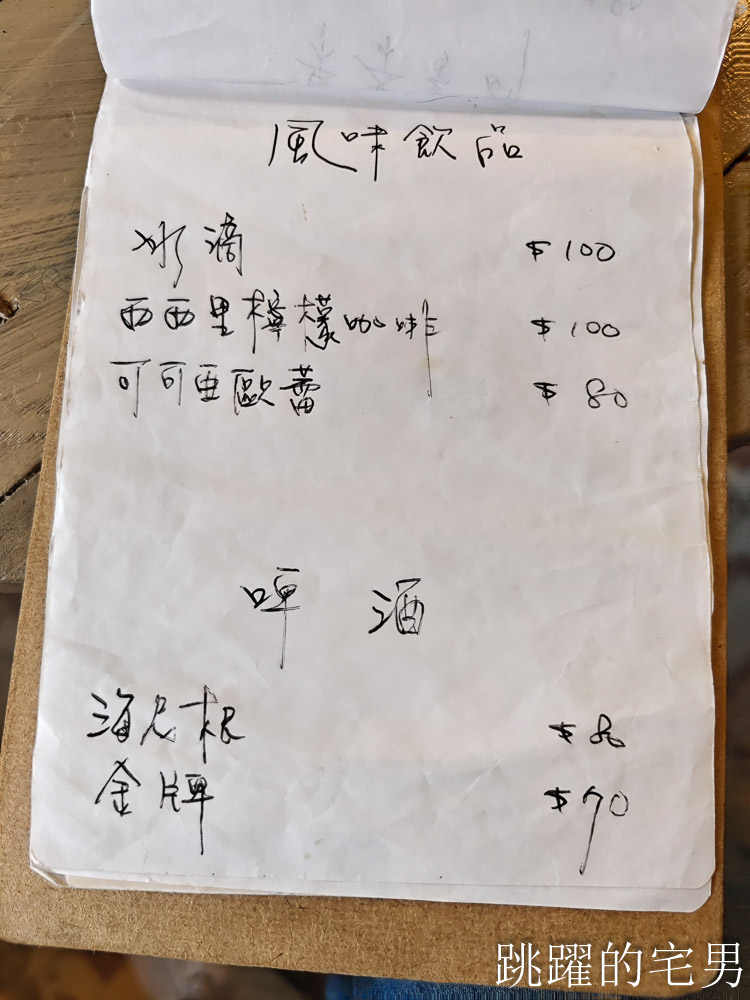 風味飲品
冰滴 $100
西西里檸檬咖啡 $100
可可亞歐蕾 $80
啤酒
海尼根 $80
金牌 $70
跳躍的宅男